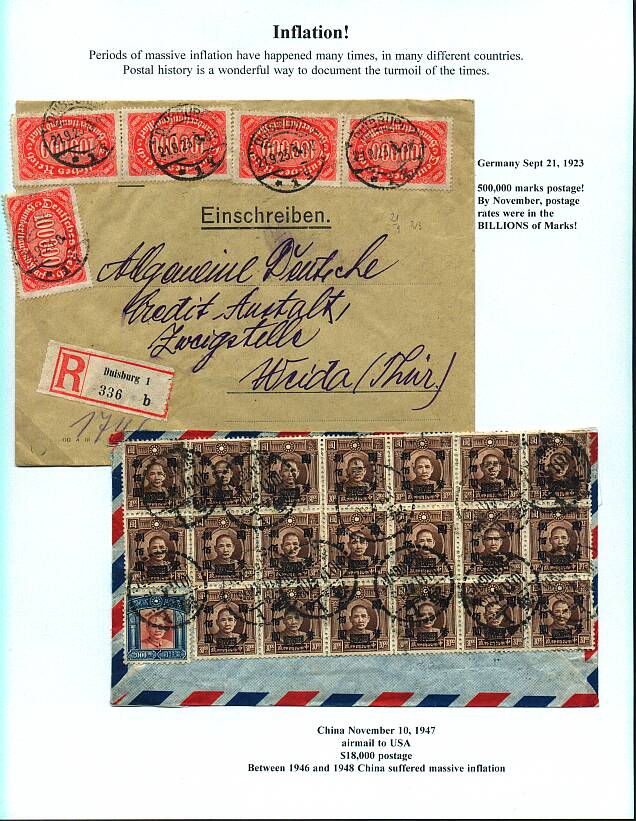 Inflation!
Periods of massive inflation have happened many times, in many different countries.
Postal history is a wonderful way to document the turmoil of the times.
Germany Sept 21, 1923
500,000 marks postage!
By November, postage
rates were in the
BILLIONS of Marks!
100000
Einschreiben.
Allgemeine Deutsche
Credit Anstalt,
Zweigstelle
Weida (Thür.)
R
Duisburg 1
336 b
China November 10, 1947
airmail to USA
$18,000 postage
Between 1946 and 1948 China suffered massive inflation